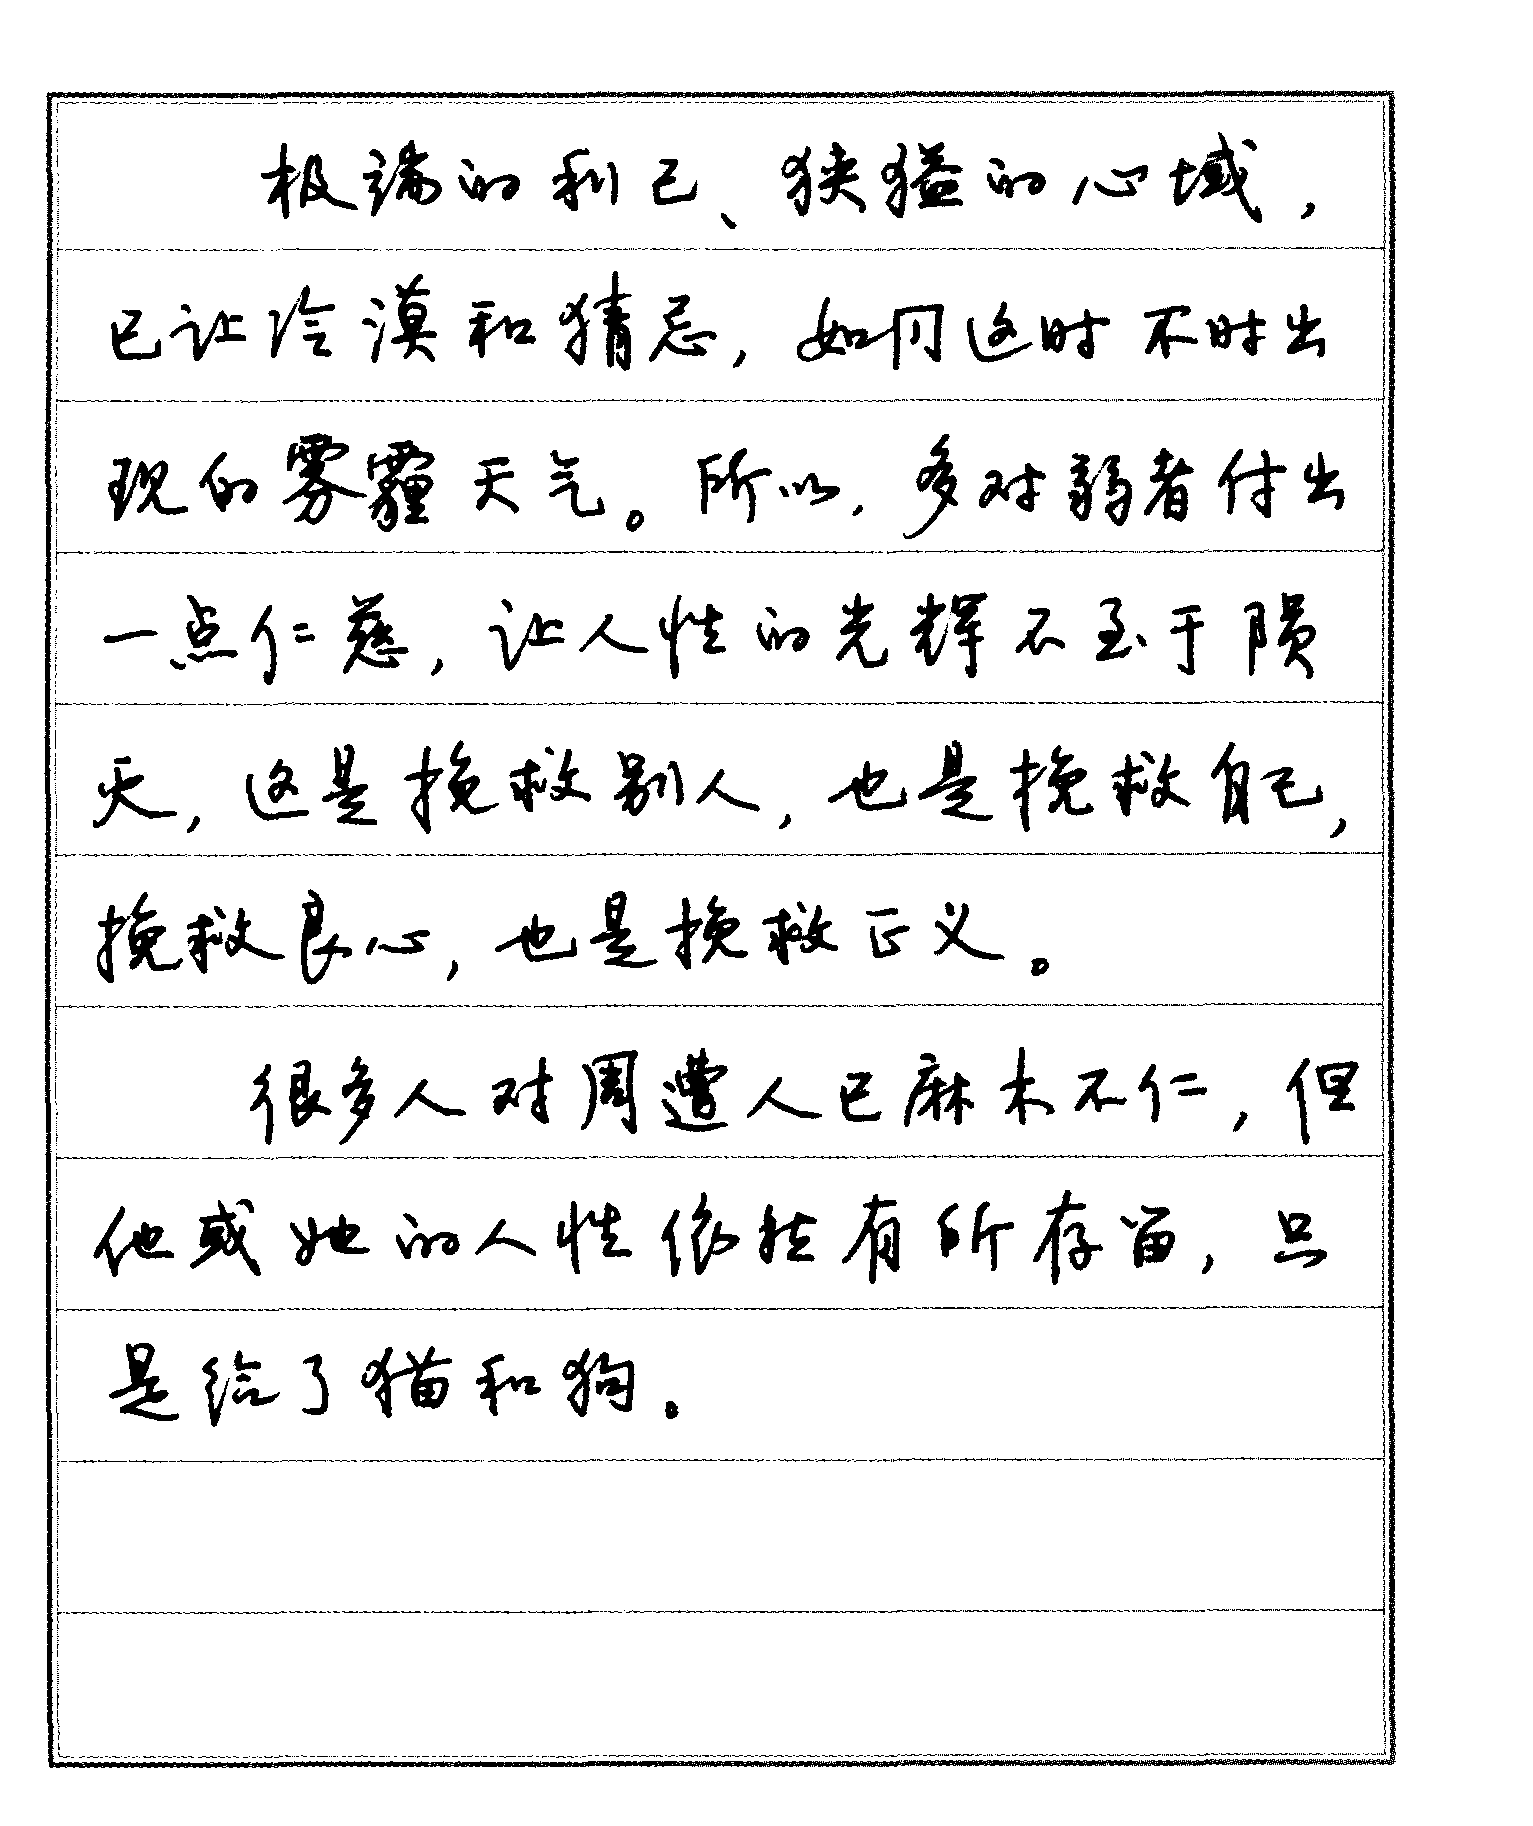 极端的利己、狭猛的心域，
已让冷漠和猜忌，如同这时不时出
现的雾霾天气。所以，多对弱者付出
一点仁慈，让人性的光辉不至于陨
灭，这是挽救别人，也是挽救自己，
挽救良心，也是挽救正义。
很多人对周遭人已麻木不仁，但
他或她的人性依然有所存留，只
是给了猫和狗。